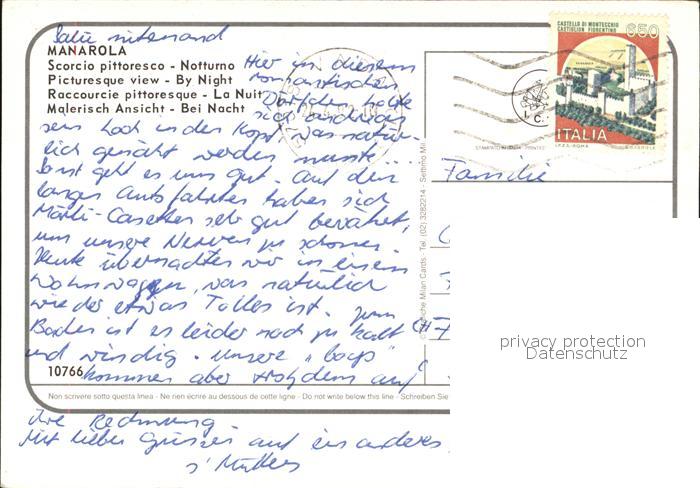 Salü mitenand
MANAROLA
Scorcio pittoresco - Notturno
Picturesque view - By Night
Raccourcie pittoresque - La Nuit
Malerisch Ansicht - Bei Nacht
Hier in diesem
romantischen
Dörfchen holte
sich
sein Loch in den Kopf, was natür-
lich genäht werden musste...
Sonst geht es uns gut. Auf den
langen Autofahrten haben sich
Märli-Casetten sehr gut bewährt,
um unsere Nerven zu schonen.
Heute übernachten wir in einem
Wohnwagen, was natürlich
wieder etwas Tolles ist. Zum
Baden ist es leider noch zu kalt
und windig. Unsere „boys"
kommen aber trotzdem auf
10766
Non scrivere sotto questa linea - Ne rien écrire au dessous de cette ligne - Do not write below this line - Schreiben Sie
ihre Rechnung.
Mit lieben Grüssen auf ein anderes
s'Müllers
Familie
(CH-
CASTELLO DI MONTECCHIO
CASTIGLION FIORENTINO
650
ITALIA
I.P.Z.S.-ROMA
I. C.
Milan Cards - Tel. (02) 3282214 - Settimo Mil
privacy protection
Datenschutz